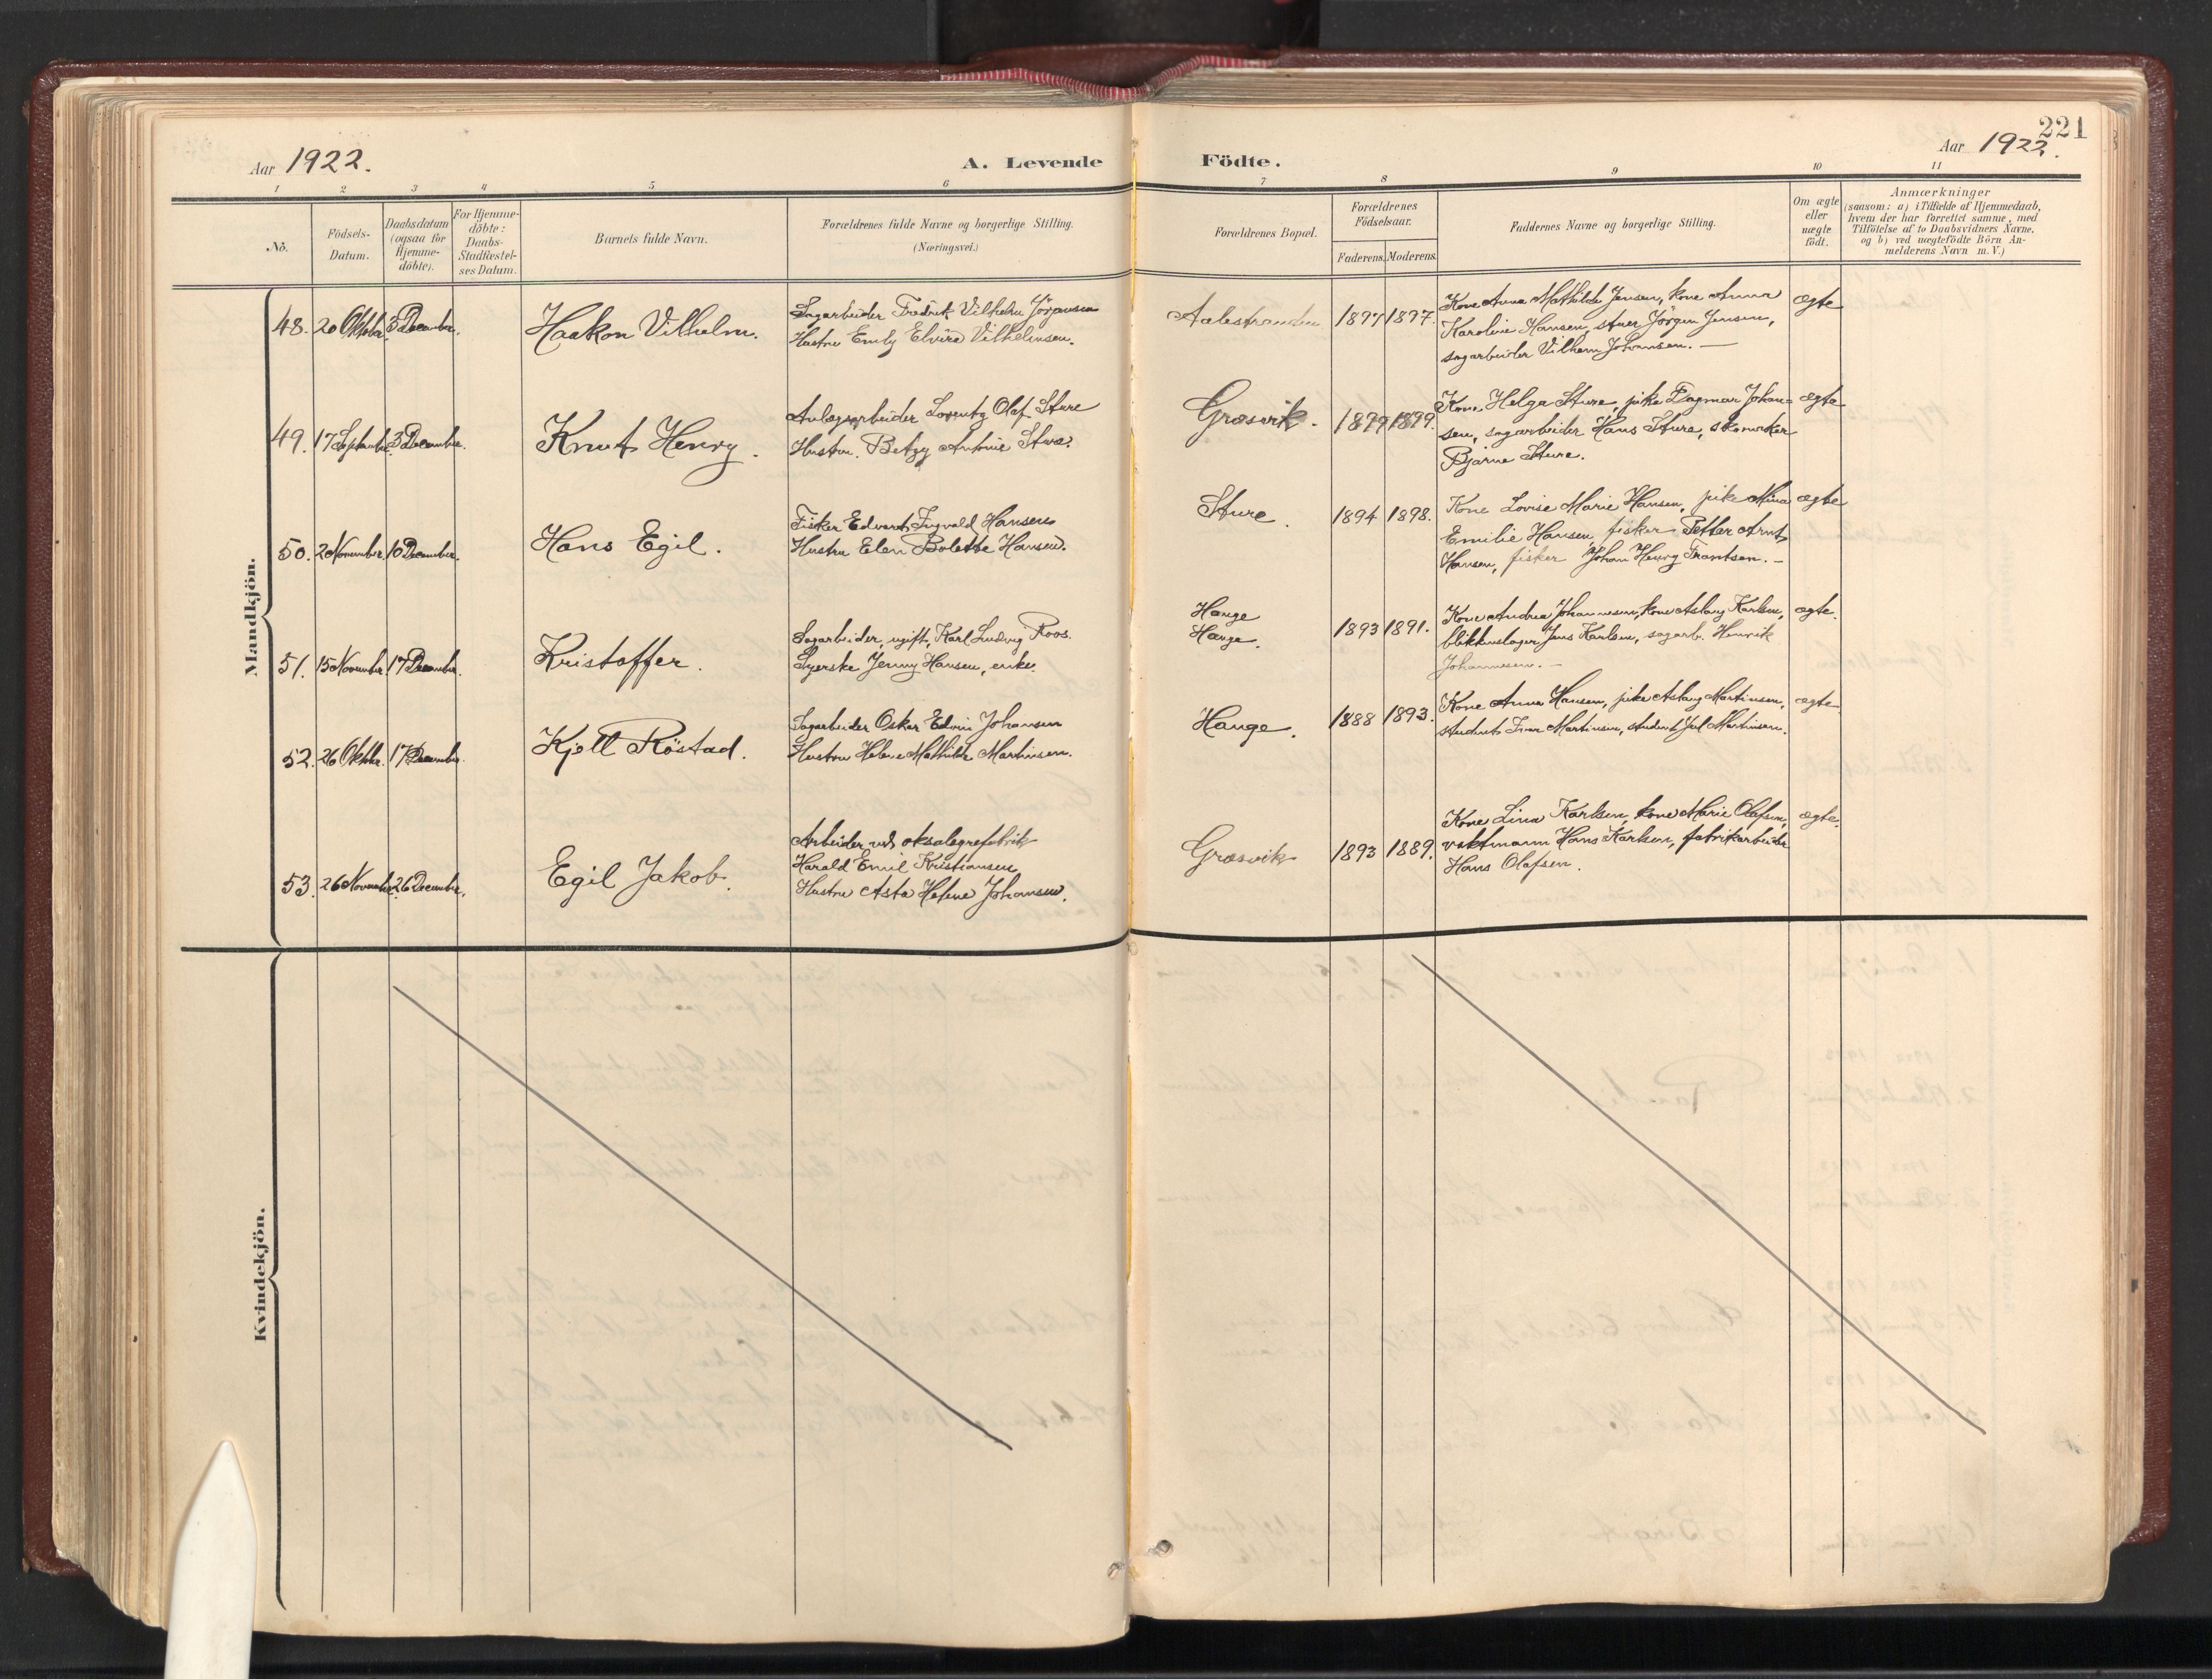 221
Aar 1922.
A. Levende Födte.
Aar 1922.
1 2 3 4 5 6 7 8 9 10 11
No.
Födsels-
Datum.
Daabsdatum
(ogsaa for
Hjemme-
döbte).
For Hjemme-
döbte:
Daabs-
Stadfæstel-
ses Datum.
Barnets fulde Navn.
Forældrenes fulde Navne og borgerlige Stilling.
(Næringsvei.)
Forældrenes Bopæl.
Forældrenes
Födselsaar.
Faderens. Moderens.
Faddernes Navne og borgerlige Stilling.
Om ægte
eller
uægte
födt.
Anmærkninger
(saasom: a) i Tilfælde af Hjemmedaab,
hvem der har forrettet samme, med
Tilföielse af to Daabsvidners Navne.
og b) ved uægtefödte Börn An-
melderens Navn m. V.)
Mandkjön.
48. 20 Oktober 3 December. Haakon Vilhelm.
Sagarbeider Fredrik Vilhelm Jörgensen
Hustru Emly Elvire Vilhelmsen.
Aalestranden 1897 1897.
Kone Anna Mathilde Jensen, kone Anna
Karoline Hansen, stuer Jörgen Jensen,
sagarbeider Vilhem Johansen. —
ægte
49. 17 September 3 December. Knut Henry.
Anlægsarbeider Lorentz Olaf Sture
Hustru Betzy Antonie Sture.
Græsvik. 1899 1899.
Kone Helga Sture, pike Dagmar Johan-
sen, sagarbeider Hans Sture, skomaker
Bjarne Sture.
ægte
50. 2 November 10 December. Hans Egil.
Fisker Edvart Ingvald Hansen
Hustru Elen Bolette Hansen.
Sture. 1894 1898.
Kone Lovise Marie Hansen, pike Mina
Emilie Hansen, fisker Petter Arnt
Hansen, fisker Johan Henry Frantsen. —
ægte
51. 15 November 17 December. Kristoffer.
Sagarbeider, ugift, Karl Ludvig Roos.
Syerske Jenny Hansen, enke.
Hauge
Hauge. 1893 1891.
Kone Andrea Johannesen, kone Aslaug Karlsen,
blikkenslager Jens Karlsen, sagarb. Henrik
Johannesen. —
ægte.
52. 26 Oktober. 17 December. Kjell Röstad.
Sagarbeider Oskar Edvin Johansen
Hustru Helene Mathilde Martinsen.
Hauge. 1888 1893.
Kone Anna Hansen, pike Aslaug Martinsen,
student Martinsen, student Martinsen.
ægte
53. 26 November 26 December. Egil Jakob.
Arbeider ved oksalsyrefabrik
Harald Emil Kristiansen
Hustru Asta Helene Johansen.
Græsvik 1893 1889.
Kone Lina Karlsen, kone Marie Olafsen,
vaktmann Hans Karlsen, fabrikarbeider
Hans Olafsen.
ægte.
Kvindekjön.